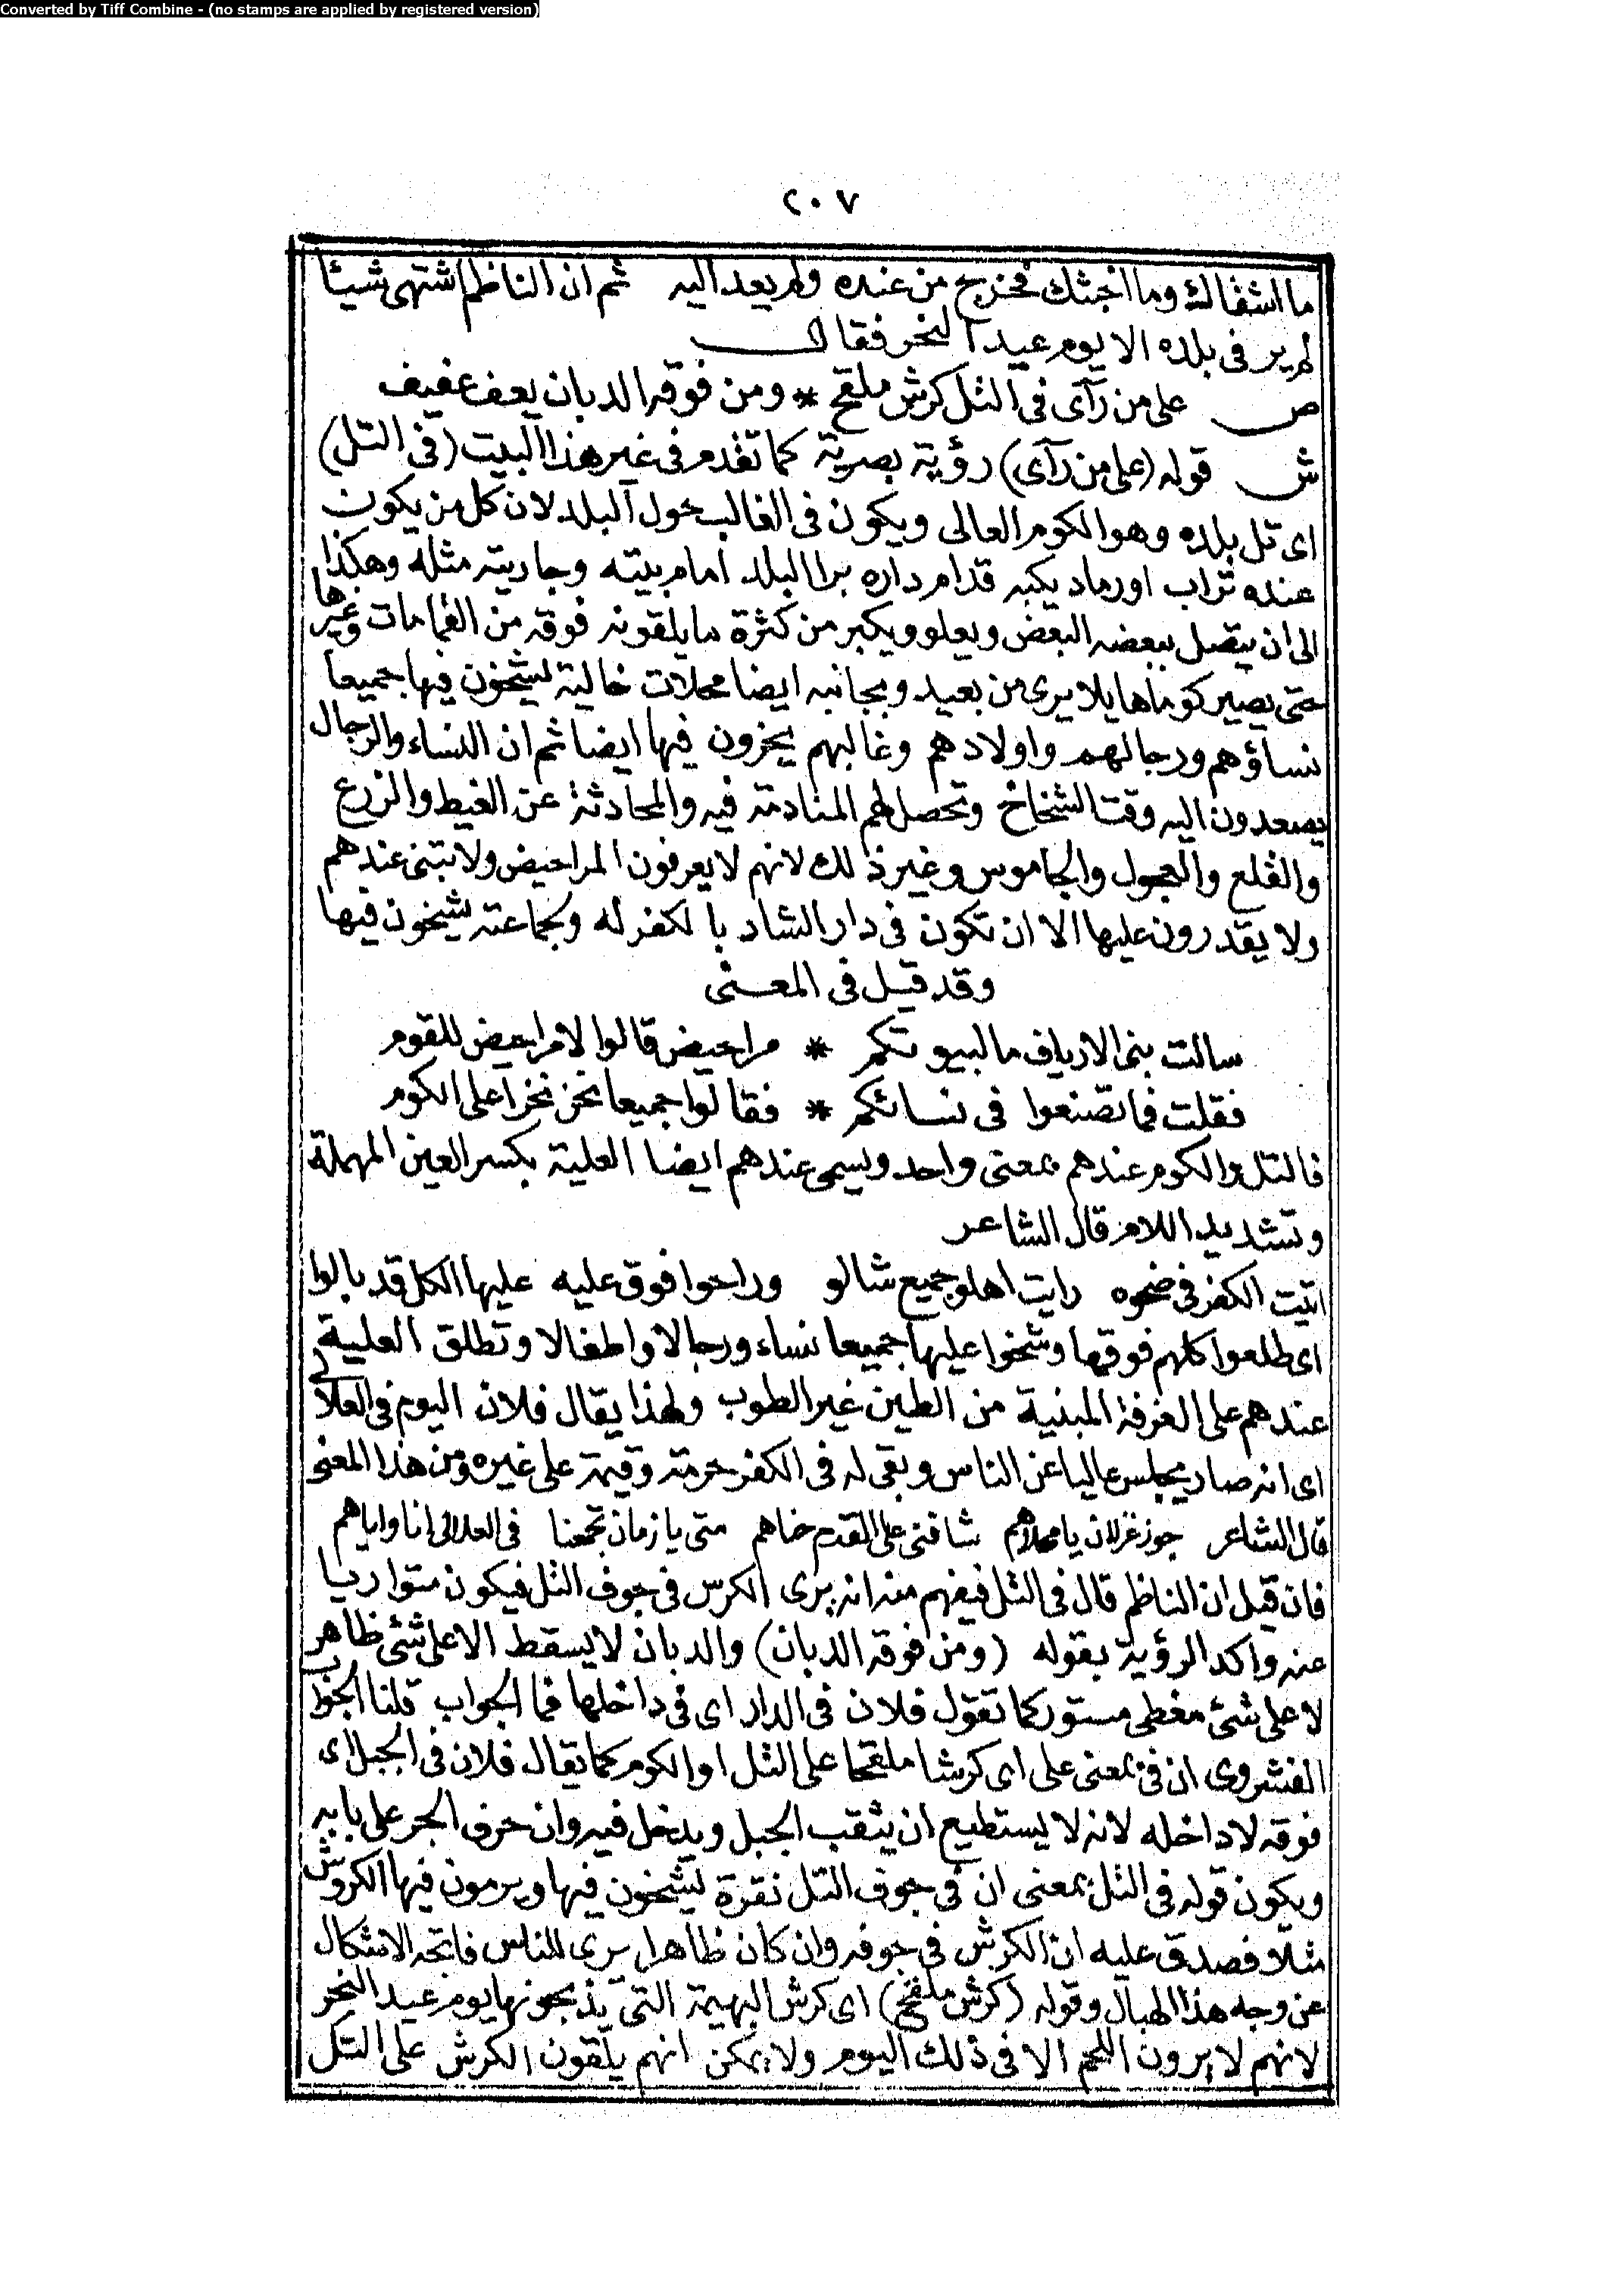 Converted by Tiff Combine - (no stamps are applied by registered version)
٢٠٧
ما اشقاك وما اخبثك فخرج من عنده ولم يعد اليه ثم ان الناظم اشتهى شيئا
لم ير فى بلده الا يوم عيد النحر فقال
ص على من رآى فى التل كرش ملقح * ومن فوقه الدبان يعف عفيف
ش قوله (على من رآى) رؤية بصرية كما تقدم فى غير هذا البيت (فى التل)
اى تل بلده وهو الكوم العالى ويكون فى الغالب حول البلد لان كل من يكون
عنده تراب او رماد يكبه قدام داره برا البلد امام بيته وجاريته مثله وهكذا
الى ان يتصل ببعضه البعض ويعلو ويكبر من كثرة ما يلقونه فوقه من القمامات وغيرها
حتى يصير كوما هايلا يرى من بعيد وبجانبه ايضا محلات خالية يشخون فيها جميعا
نساؤهم ورجالهم واولادهم وغالبهم يخرون فيها ايضا ثم ان النساء والرجال
يصعدون اليه وقت الشخاخ وتحصل لهم المنادمة فيه والمحادثة عن الغيط والزرع
والقلع والعجول والجاموس وغير ذلك لانهم لا يعرفون المراحيض ولا تبنى عندهم
ولا يقدرون عليها الا ان تكون فى دار الشاد بالكفر له ولجماعته يشخون فيها
وقد قيل فى المعنى
سالت بنى الارياف ما لبيوتكم * مراحيض قالوا لا مراحيض للقوم
فقلت فما تصنعوا فى نسائكم * فقالوا جميعا نحن نخرا على الكوم
فالتل والكوم عندهم بمعنى واحد ويسمى عندهم ايضا العلية بكسر العين المهملة
وتشديد اللام قال الشاعر
اتيت الكفر فى ضحوه رايت اهلو جميع شالو وراحوا فوق عليه عليها الكل قد بالوا
اى طلعوا كلهم فوقها وشخوا عليها جميعا نساء ورجالا واطفالا وتطلق العلية
عندهم على الغرفة المبنية من الطين غير الطوب ولهذا يقال فلان اليوم فى العلالى
اى انه صار مجلس عاليا عن الناس وبقى له فى الكفر حرمة وقيمة على غيره ومن هذا المعنى
قال الشاعر جوز غزلان يا محلاهم شاقنى على القدم خماهم متى يا زمان تجمعنا فى العلالى انا واياهم
فان قيل ان الناظم قال فى التل فيفهم منه انه يرى الكرس فى جوف التل فيكون متواريا
عنه واكد الرؤية بقوله (ومن فوقه الدبان) والدبان لا يسقط الا على شئ ظاهر
لا على شئ مغطى مستور كما تقول فلان فى الدار اى فى داخلها فما الجواب قلنا الجواب
الفشروى ان فى بمعنى على اى كرشا ملقحا على التل او الكوم كما يقال فلان فى الجبل اى
فوقه لا داخله لانه لا يستطيع ان يثقب الجبل ويدخل فيه وان حرف الجر على بابه
ويكون قوله فى التل بمعنى ان فى جوف التل نقرة يشخون فيها ويرمون فيها الكروش
مثلا فصدق عليه ان الكرش فى جوفه وان كان ظاهرا يرى للناس فاتجه الاشكال
عن وجه هذا الهبال وقوله (كرش ملقح) اى كرش البهيمة التى يذبحونها يوم عيد النحر
لانهم لا يرون اللحم الا فى ذلك اليوم ولا يمكن انهم يلقون الكرش على التل